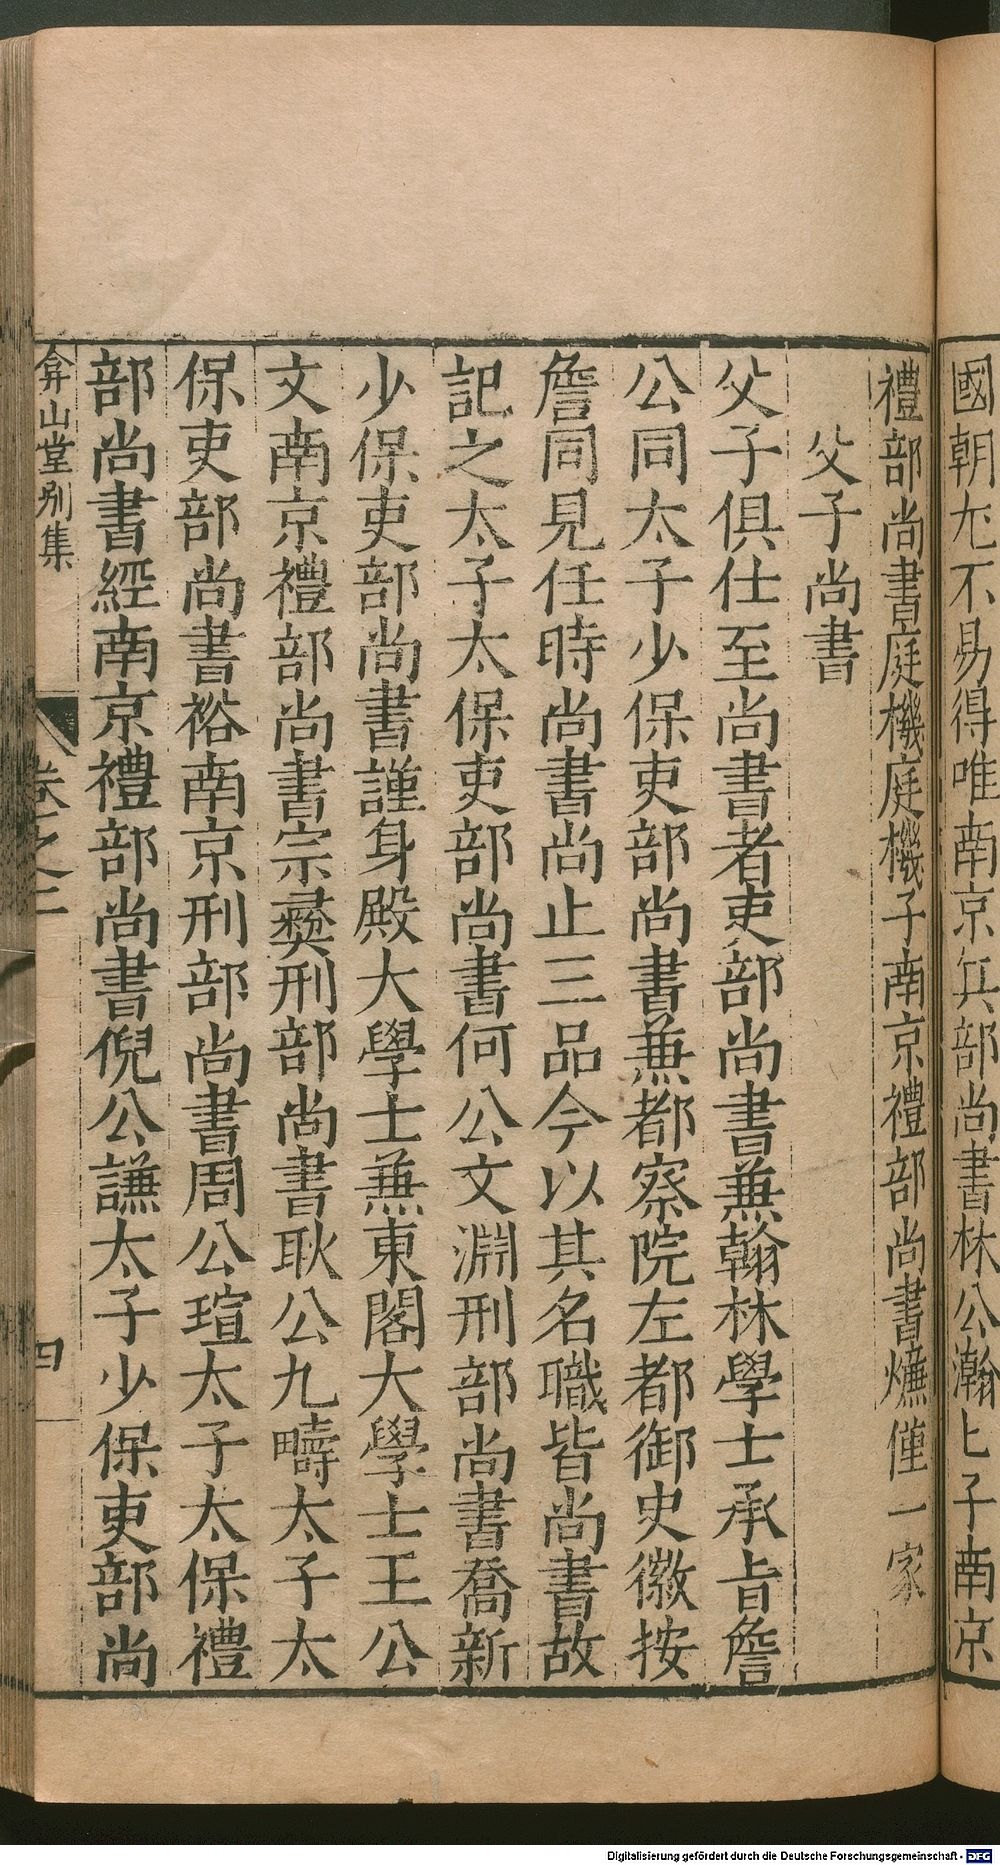 國朝尤不易得唯南京兵部尚書林公瀚上子南京
禮部尚書庭機庭機子南京禮部尚書燫僅一家
父子尚書
父子俱仕至尚書者吏部尚書兼翰林學士承旨詹
公同太子少保吏部尚書兼都察院左都御史徽按
詹同見任時尚書尚止三品今以其名職皆尚書故
記之太子太保吏部尚書何公文淵刑部尚書喬新
少保吏部尚書謹身殿大學士兼東閣大學士王公
文南京禮部尚書宗彛刑部尚書耿公九疇太子太
保吏部尚書裕南京刑部尚書周公瑄太子太保禮
部尚書經南京禮部尚書倪公謙太子少保吏部尚
弇山堂別集
卷之二
四
Digitalisierung gefördert durch die Deutsche Forschungsgemeinschaft - DFG